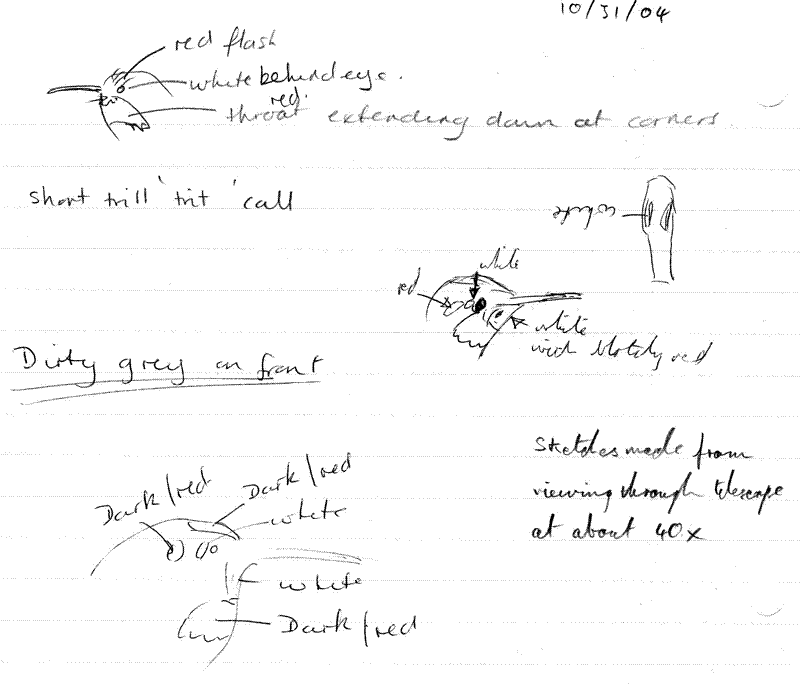 10/31/04
red flash
white behind eye.
red.
throat extending down at corners.
short trill 'trit' call
white
white
red
white
with blotchy red
Dirty grey on front
Sketches made from
viewing through telescope
at about 40x
Dark/red
Dark/red
white
white
Dark/red